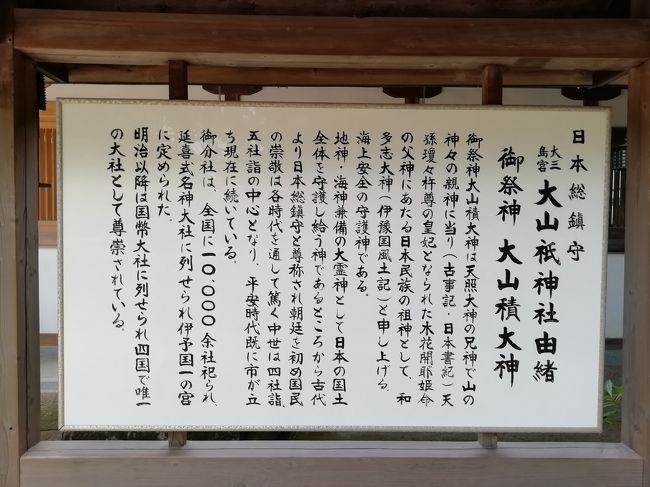 日本総鎮守
大三島宮 大山祇神社由緒
御祭神 大山積大神
御祭神大山積大神は天照大神の兄神で山の
神々の親神に当り（古事記・日本書紀）天
孫瓊々杵尊の皇妃となられた木花開耶姫命
の父神にあたる日本民族の祖神として、和
多志大神（伊豫国風土記）と申し上げる。
海上安全の守護神である。
地神・海神兼備の大霊神として日本の国土
全体を守護し給う神であるところから古代
より日本総鎮守と尊称され朝廷を初め国民
の崇敬は各時代を通して篤く中世は四社詣、
五社詣の中心となり、平安時代既に市が立
ち現在に続いている。
御分社は、全国に一〇、〇〇〇余社祀られ、
延喜式名神大社に列せられ伊予国一の宮
に定められた。
明治以降は国幣大社に列せられ四国で唯一
の大社として尊崇されている。